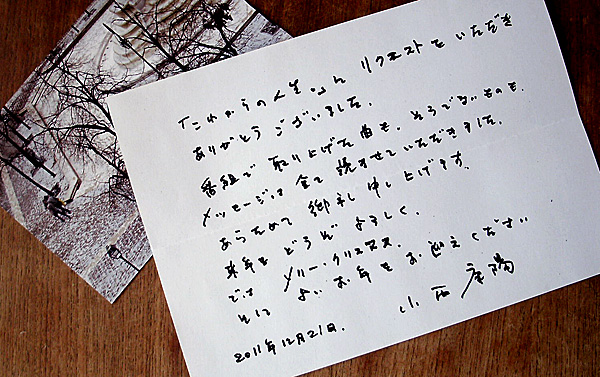 「これからの人生。」に リクエストを いただき
ありがとう ございました。
番組で 取り上げた曲も、そうでないものも、
メッセージは 全て 読ませて いただきました。
あらためて 御礼 申し上げます。
来年も どうぞ よろしく。
では メリー・クリスマス。
そして よい お年を お迎え ください
小西 康陽
2011年12月21日.